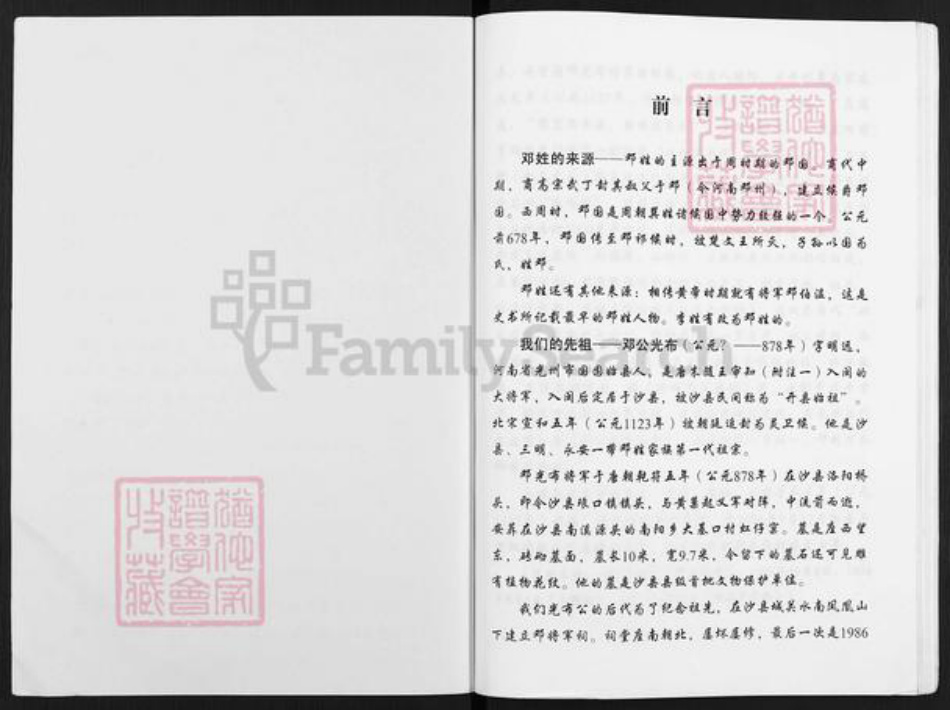 前 言
邓姓的来源——邓姓的主源出于周时期的邓国。商代中
期，商高宗武丁封其叔父于邓（今河南邓州），建立候爵邓
国。西周时，邓国是周朝异姓诸候国中势力较强的一个。公元
前678年，邓国传至邓祁候时，被楚文王所灭，子孙以国为
氏，姓邓。
邓姓还有其他来源：相传黄帝时期就有将军邓伯温，这是
史书所记载最早的邓姓人物。李姓有改为邓姓的。
我们的先祖——邓公光布（公元？——878年）字明远，
河南省光州市固固始县人，是唐末随王审知（附注一）入闽的
大将军，入闽后定居于沙县，被沙县民间称为“开县始祖”。
北宋宣和五年（公元1123年）被朝廷追封为灵卫候。他是沙
县、三明、永安一带邓姓家族第一代祖宗。
邓光布将军于唐朝乾符五年（公元878年）在沙县洛阳桥
头，即今沙县琅口镇镇头，与黄巢起义军对阵，中流箭而逝，
安葬在沙县南溪源头的南阳乡大基口村虹仔窠。墓是座西望
东，砖砌墓面，墓长10米，宽9.7米，今留下的墓石还可见雕
有植物花纹。他的墓是沙县县级首批文物保护单位。
我们光布公的后代为了纪念祖先，在沙县城关水南凤凰山
下建立邓将军祠。祠堂座南朝北，屡坏屡修，最后一次是1986
FamilySearch
譜學會
收藏